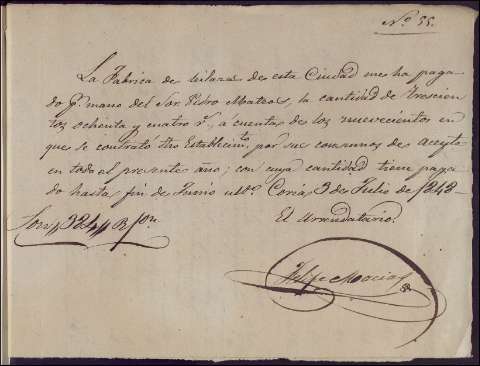 Nº 55.
La Fabrica de hilaza de esta Ciudad me ha paga-
do p.r mano del Sor. Pedro Mateos, la cantidad de Trescien
tos ochenta y cuatro r.s, á cuenta de los nuevecientos en
que se contrató dho Establecim.to, por sus consumos de aceyte
en todo el presente año; con cuya cantidad tiene paga
do hasta fin de Junio ult.o. Coria, 3 de Julio de 1843
El Arrendatario.
Son 384 R.s von.
Felipe Macias